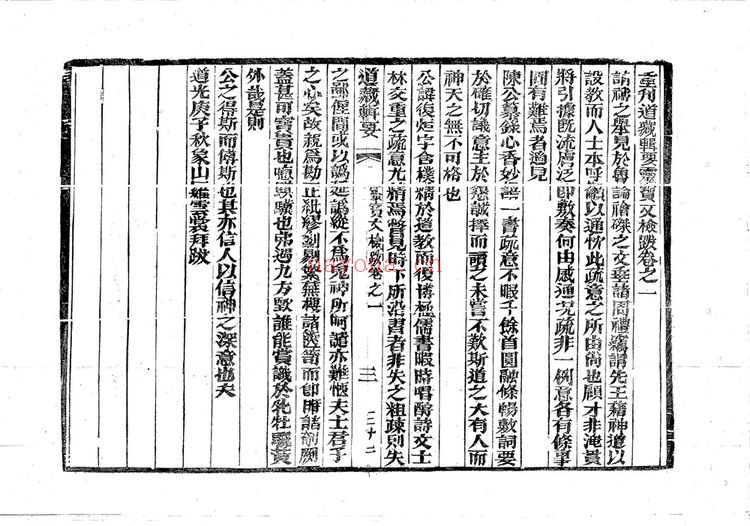 重刊道藏輯要靈寶文檢跋卷之一
請禱之舉見於魯論禬禜之文垂諸周禮竊謂先王藉神道以
設教而人士本呼籲以通忱此疏意之所由倘也顧才非淹貫
將引據既流膚泛即敷奏何由感通况疏非一例意各有條事
固有難焉者適見
陳公慕錄心香妙語一書疏意不暇千餘首圓融條暢敷詞要
於確切議意主於懇誠擇而頌之未嘗不歎斯道之大有人而
神天之無不可格也
公諱復烜字含樸精於道教而復博極儒書暇時唱酬詩文士
林交重之疏意尤精焉嘗見時下所沿書者非失之粗疎則失
道藏輯要
靈寶文檢跋卷之一
三
二十二
之鄙俚間或以訛延訛縱不爲鬼神所呵譴亦難愜夫士君子
之心矣故親爲勘正紕繆剞劂棗葉
蓋甚可寶貴也
驥也弗遇九方歅誰能賞識於牝牡驪黄
外哉是則
公之得斯而傳斯也其亦信人以信神之深意也夫
道光庚子秋象山
拜跋
nayona.cn